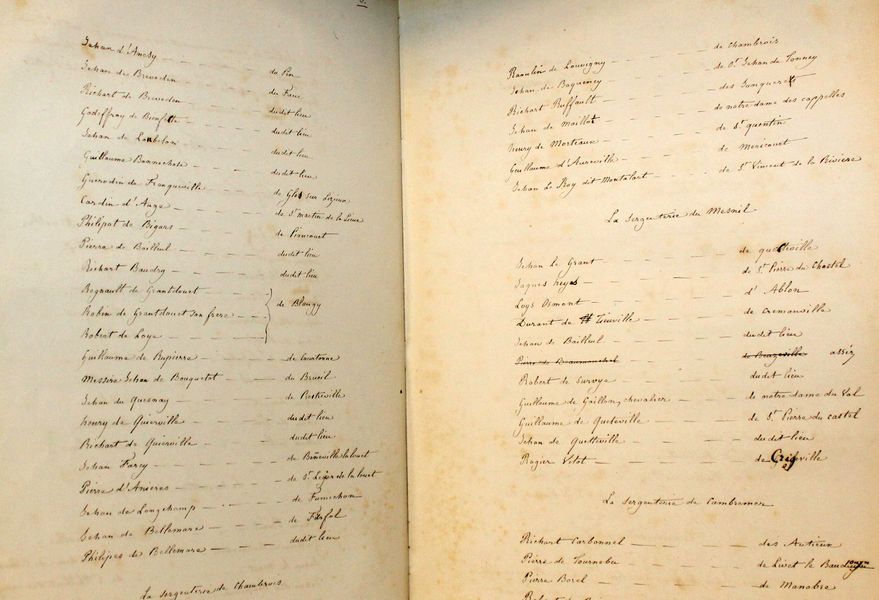 Jehan d'Anesy
Jehan de Brevedin - - - - du Pin
Richart de Brevedin - - - - du Faue
Godiffroy de - - - - dudit lieu
Jehan de - - - - dudit lieu
Guillaume Bonnechose - - - - dudit lieu
Guerodin de Franqueville - - - - dudit lieu
Cardin d'Auge - - - - de Glos sur Lezieux
Philipot de Bigars - - - - de St martin de la Lieue
Pierre de Bailleul - - - - de Piencourt
Richart Baudry - - - - dudit lieu
Regnault de Grantdouet - - dudit lieu
Robin de Grantdouet son frere - - de Blangy
Robert de Loye - -
Guillaume de Rupierre - - - -
Messire Jehan de Bouquetot - - - du Brueil
Jehan du Quesnay - - - - de Pretreville
henry de Quierville - - - - dudit lieu
Richart de Quierville - - - - dudit lieu
Jehan Farcy - - - - de Bineville la louet
Pierre d'Anieres - - - - de St Leger de la louet
Jehan de Longchamp - - - - de Fumechon
Jehan de Bellemare - - - - de Firfol
Philipes de Bellemare - - - - dudit lieu
La sergenterie de Chambrois
Raoulin de Louvigny - - - - de Chambrois
Jehan de Boquencey - - - - de St Jehan de Tonney
Richart Ruffault - - - - des Jonquerets
Jehan de Maillot - - - - de notre dame des cappelles
henry de Morteaux - - - - de St quentin
Guillaume d'Aureville - - - - de Mericourt
Jehan Le Roy dit Montalart - - - - de St Vincent de la Riviere
La sergenterie du Mesnil
Jehan le Grant - - - - de quetteville
Jaques heyes - - - - de St Pierre du Chastel
Loys Osmont - - - - d' Ablon
Durant de Tieuville - - - - de Cremanville
Jehan de Bailleul - - - - dudit lieu
Pierre de Beaumouchel - - - - de Beuzeville assis
Robert de Survoye - - - - dudit lieu
Guillaume de Gaillon, chevalier - - - - de notre dame du Val
Guillaume de Queteville - - - - de St Pierre du castel
Jehan de Quetteville - - - - dudit lieu
Rogier Vitot - - - - de
La sergenterie de Cambremer
Richart Carbonnel - - - - des Autieux
Pierre de Tournebu - - - - de Livet le
Pierre Borel - - - - de Manebre